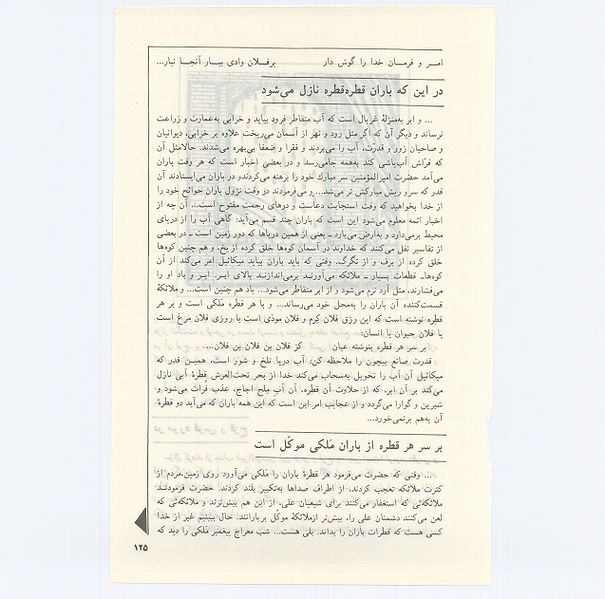 امر و فرمان خدا را گوش دار برفلان وادی ببار آنجا نبار...
در این که باران قطره‌قطره نازل می‌شود
... و ابر به‌منزلهٔ غربال است که آب متقاطر فرود بیاید و خرابی به‌عمارت و زراعت
نرساند و دیگر آن که اگر مثل رود و نهر از آسمان می‌ریخت علاوه بر خرابی، دیوانیان
و صاحبان زور و قدرت، آب را می‌بردند و فقرا و ضعفا بی‌بهره می‌شدند. حالامثل آن
که فرّاش آب‌پاشی کند به‌همه جامی‌رسد و در بعضی اخبار است که هر وقت باران
می‌آمد حضرت امیرالمؤمنین سر مبارک خود را برهنه می‌کردندو در باران می‌ایستادند آن
قدر که سر و ریش مبارکش تر می‌شد... و می‌فرمودند در وقت نزول باران حوائج خود را
از خدا بخواهید که وقت استجابت دعاست و درهای رحمت مفتوح است... آن چه از
اخبار ائمه معلوم می‌شود این است که باران چند قسم می‌آید: گاهی آب را از دریای
محیط برمی‌دارد و به‌ارض می‌بارد ـ یعنی از همین دریاها که دور زمین است ـ در بعضی
از تفاسیر نقل می‌کنند که خداوند در آسمان کوه‌ها خلق کرده از یخ، و هم چنین کوه‌ها
خلق کرده از برف و از تگرگ. وقتی که باید باران بیاید میکائیل امر می‌کند از آن
کوه‌هاـ قطعات بسیار ـ ملائکه می‌آورند برمی‌اندازند بالای ابر. ابر و باد او را
می‌فشارند، مثل آرد نرم می‌شود و از ابر متقاطر می‌شود... باد هم چنین است... و ملائکهٔ
قسمت‌کننده آن باران را به‌محل خود می‌رساند... و با هر قطره مَلکی است و بر هر
قطره نوشته است که این رزق فلان کِرم و فلان موذی است یا روزی فلان مرغ است
یا فلان حیوان یا انسان:
بر سر هر قطره بنوشته عیان کز فلان بن فلان بن فلان...
قدرت صانع بیچون را ملاحظه کن: آب دریا تلخ و شور است، همین قدر که
میکائیل آن آب را تحویل به‌سحاب می‌کند خدا از بحر تحت‌العرش قطرهٔ آبی نازل
می‌کند بر آن ابر، که از حلاوت آن قطره، آن آب مِلح اجاج، عذب فُرات می‌شود و
شیرین و گوارا می‌گردد و از عجایب امر این است که این همه باران که می‌آید دو قطرهٔ
آن به‌هم برنمی‌خورد...
بر سر هر قطره از باران مَلکی موکّل است
... وقتی که حضرت می‌فرمود هر قطرهٔ باران را مَلکی می‌آورد روی زمین،مردم از
کثرت ملائکه تعجب کردند، از اطراف صداها به‌تکبیر بلند کردند. حضرت فرمودند
ملائکه‌ئی که استغفار می‌کنند برای شیعیان علی، از این هم بیش‌ترند و ملائکه‌ئی که
لعن می‌کنند دشمنان علی را، بیش‌تر ازملائکهٔ موکّل بربارانند. حال ببینیم غیر از خدا
کسی هست که قطرات باران را بداند. بلی هست... شب معراج پیغمبر مَلکی را دید که
۱۲۵